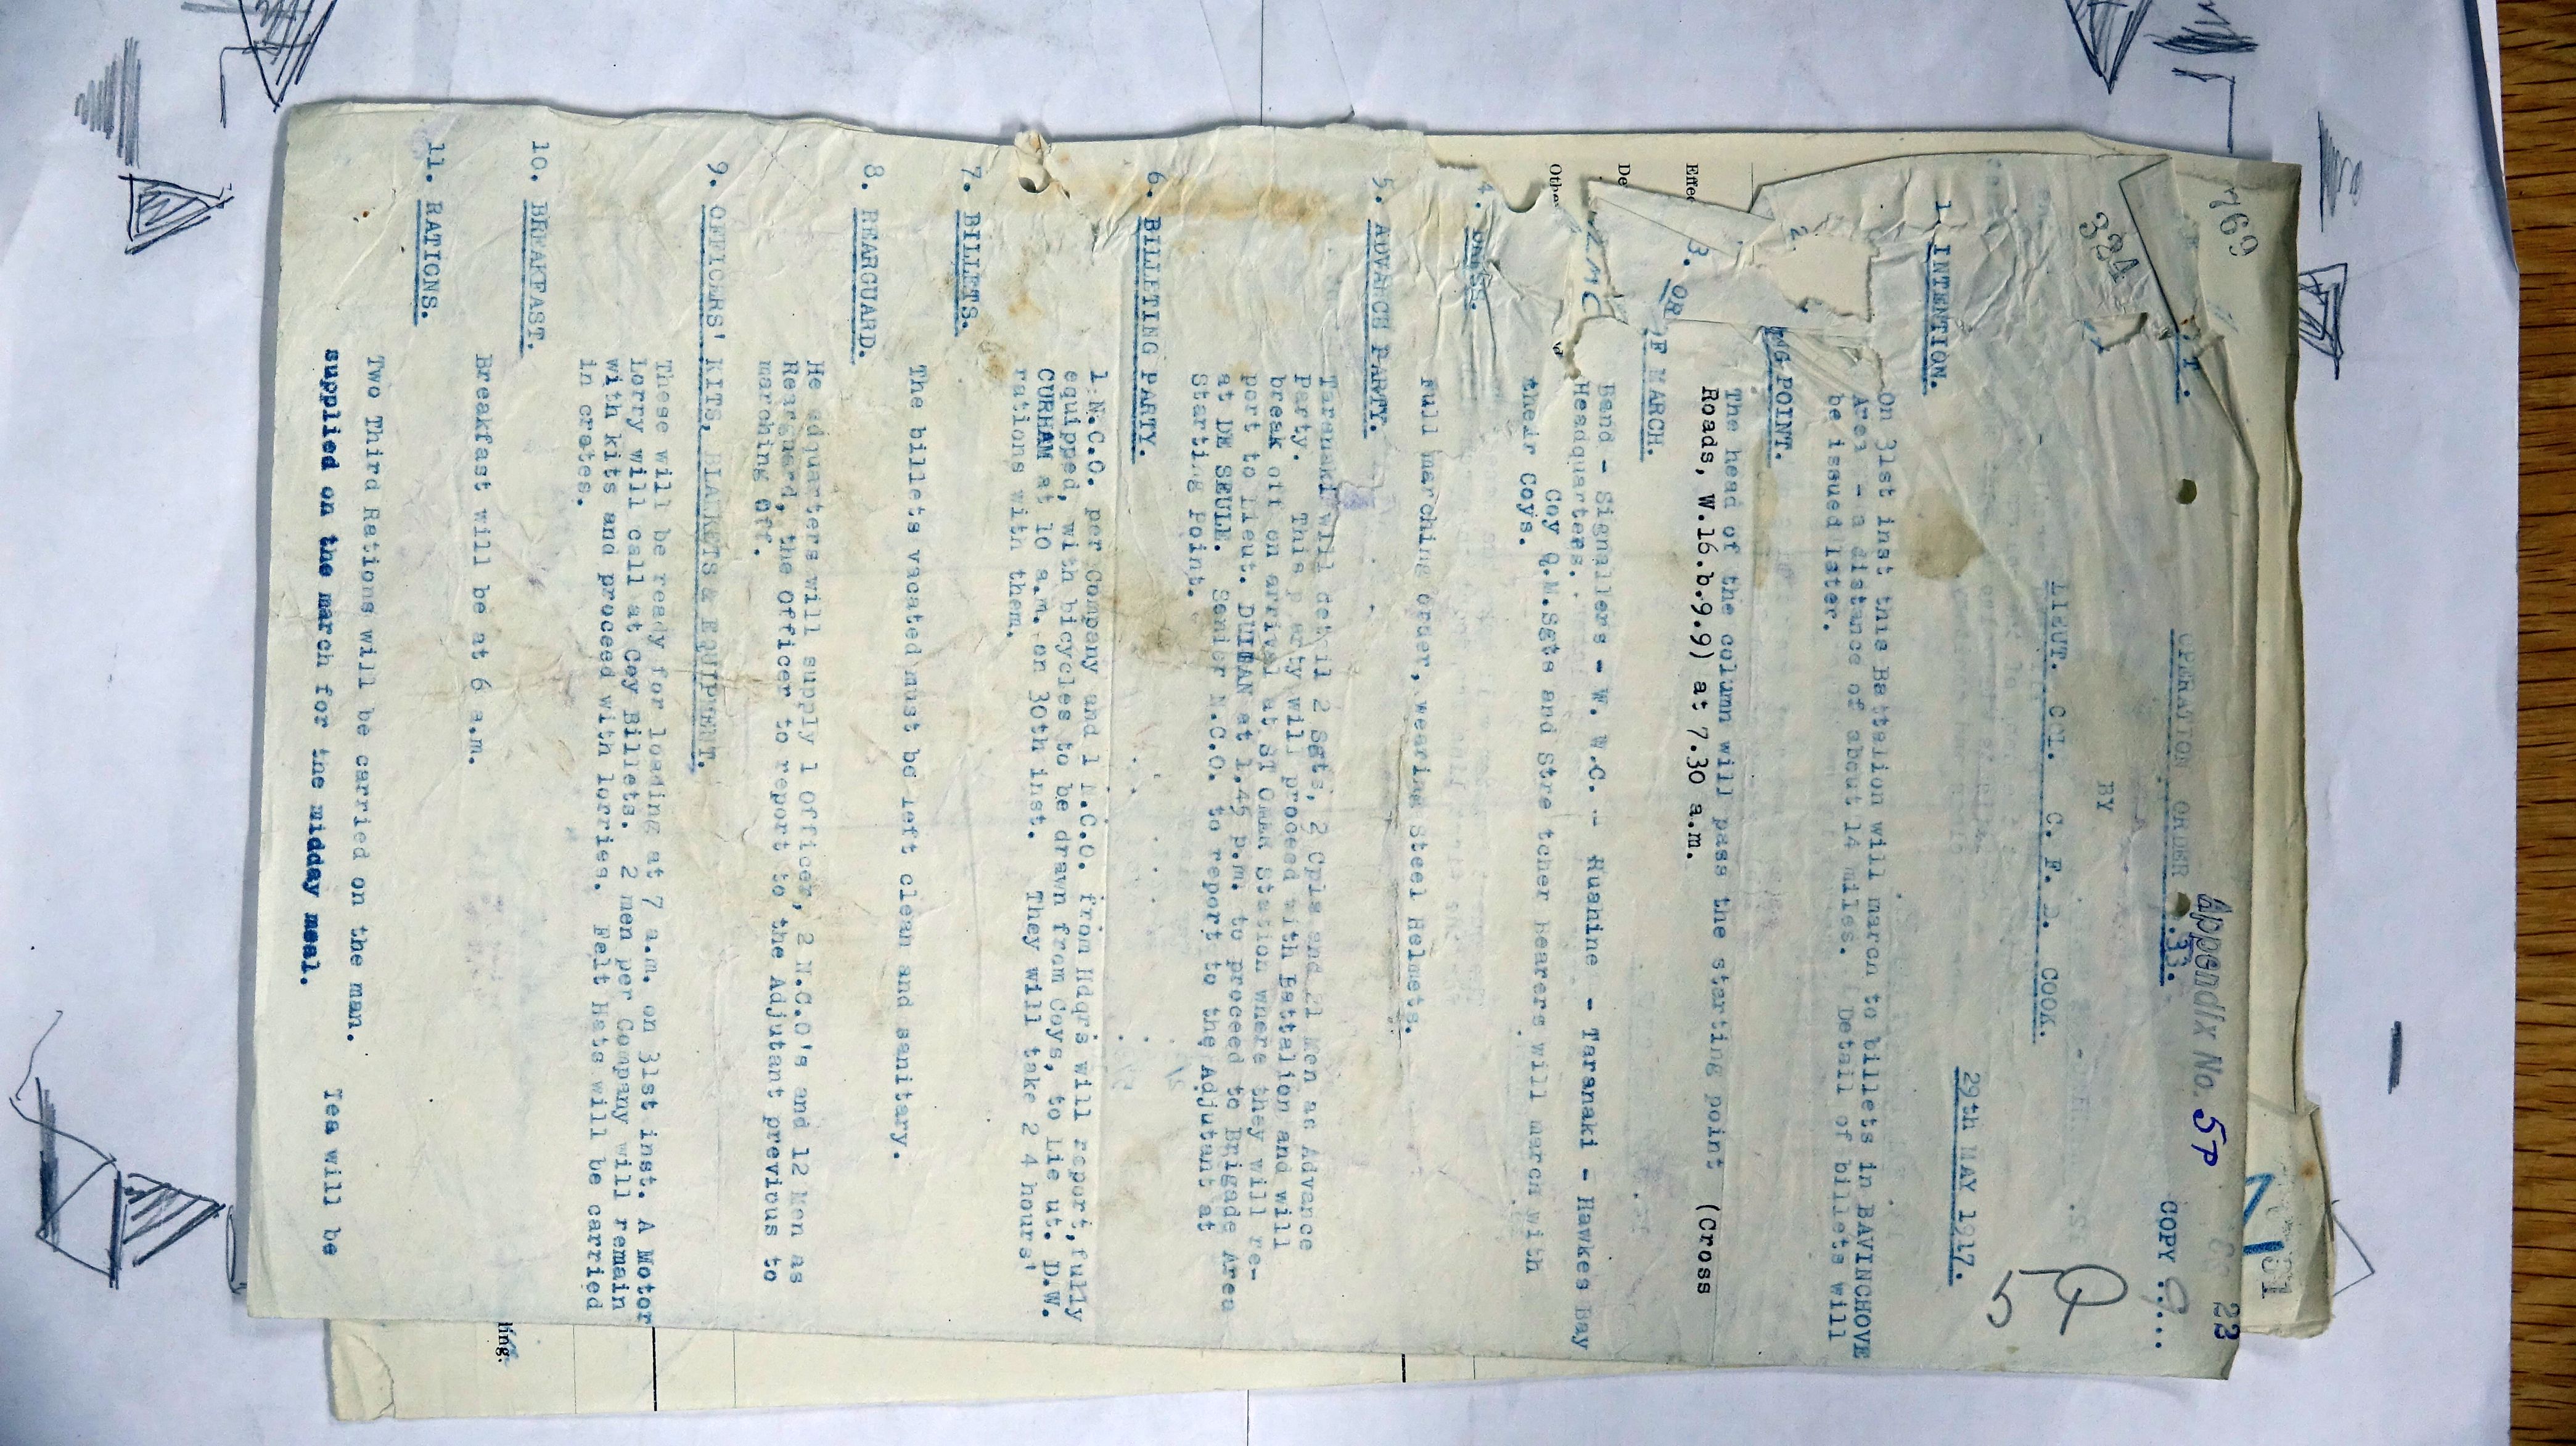 769
334
Appendix No. 5P
23
COPY .....
OPERATION ORDER .33.
BY
LIEUT. COL. C. F. D. COOK.
5P
29th MAY 1917.
1. INTENTION.
On 31st inst this Battalion will march to billets in BAVINCHOVE
Area - a distance of about 14 miles. Detail of billets will
be issued later.
2. NG POINT.
The head of the column will pass the starting point (Cross
Roads, W.16.b.9.9) at 7.30 a.m.
3. OR OF MARCH.
Band - Signallers - W. W.C. - Ruahine - Taranaki - Hawkes Bay
Headquarters.
Coy Q.M.Sgts and Stre tcher bearers will march with
their Coys.
4. DRESS.
Full marching order, wearing Steel Helmets.
5. ADVANCE PARTY.
Taranaki will detail 2 Sgts, 2 Cpls and 21 Men as Advance
Party. This party will proceed with Battalion and will
break off on arrival at ST OMER Station where they will re-
port to Lieut. DUIGAN at 1.45 p.m. to proceed to Brigade Area
at DE SEULE. Senior N.C.O. to report to the Adjutant at
Starting Point.
6. BILLETING PARTY.
1 N.C.O. per Company and 1 N.C.O. from Hdqrs will report, fully
equipped, with bicycles to be drawn from Coys, to Lie ut. D.W.
CURHAM at 10 a.m. on 30th inst. They will take 2 4 hours'
rations with them.
7. BILLETS.
The billets vacated must be left clean and sanitary.
8. REARGUARD.
He adquarters will supply 1 Officer, 2 N.C.O's and 12 Men as
Rearguard, the Officer to report to the Adjutant previous to
marching off.
9. OFFICERS' KITS, BLANKETS & EQUIPMENT.
These will be ready for loading at 7 a.m. on 31st inst. A Motor
Lorry will call at Coy Billets. 2 men per Company will remain
with kits and proceed with lorries. Felt Hats will be carried
in crates.
10. BREAKFAST.
Breakfast will be at 6 a.m.
11. RATIONS.
Two Third Rations will be carried on the man. Tea will be
supplied on the march for the midday meal.
Effec
De
Othe
ling.